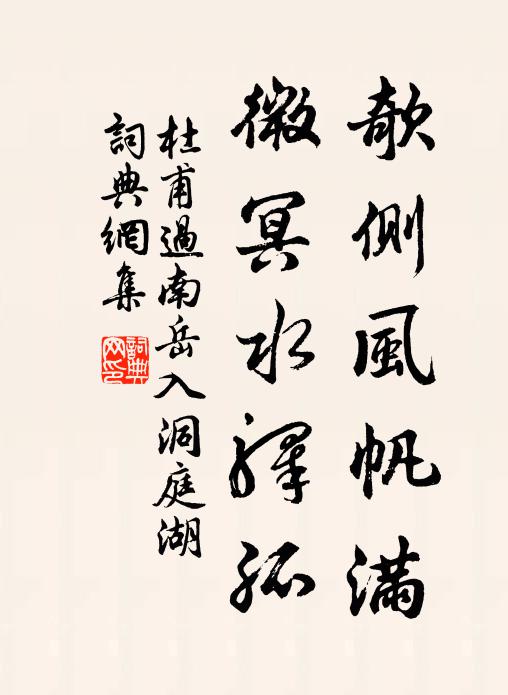 欹側風帆滿
微冥水驛孤
杜甫過南岳入洞庭湖
詞典網集
詞典網印